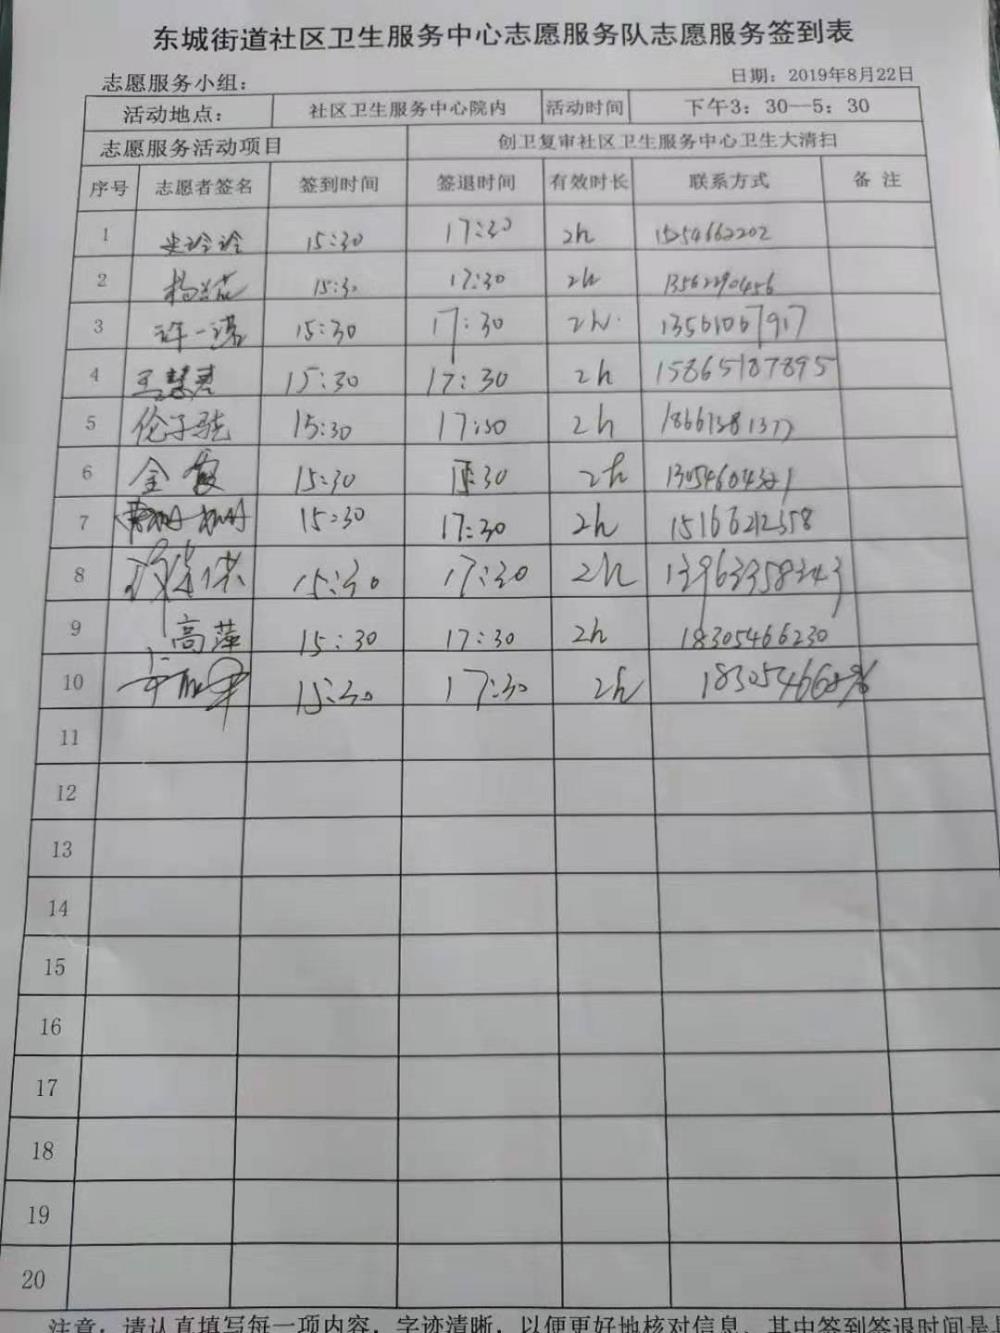 东城街道社区卫生服务中心志愿服务队志愿服务签到表
志愿服务小组： 日期：2019年8月22日
活动地点： 社区卫生服务中心院内 活动时间 下午3：30—5：30
志愿服务活动项目 创卫复审社区卫生服务中心卫生大清扫
序号 志愿者签名 签到时间 签退时间 有效时长 联系方式 备 注
1 15:30 17:30 2h 15254662202
2 15:30 17:30 2h 13562290456
3 许一诺 15:30 17:30 2h. 13561067917
4 王慧君 15:30 17:30 2h 15865187895
5 伦子骁 15:30 17:30 2h
6 金 15:30 :30 2h
7 15:30 17:30 2h 15166212558
8 15:30 17:30 2h 13963358343
9 高萍 15:30 17:30 2h 18305466230
10 15:30 17:30 2h
11
12
13
14
15
16
17
18
19
20
注意：请认真填写每一项内容，字迹清晰，以便更好地核对信息。其中签到签退时间是